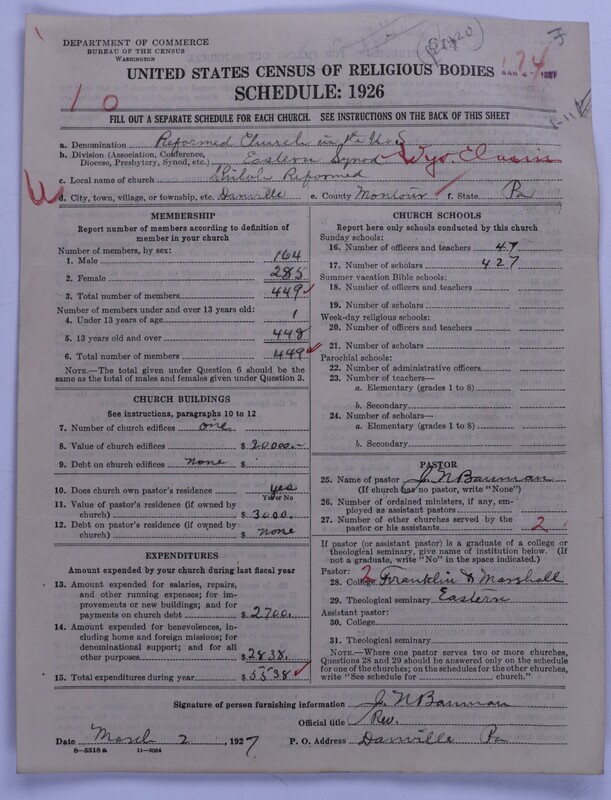 DEPARTMENT OF COMMERCE
BUREAU OF THE CENSUS
WASHINGTON
UNITED STATES CENSUS OF RELIGIOUS BODIES
SCHEDULE: 1926
10
FILL OUT A SEPARATE SCHEDULE FOR EACH CHURCH. SEE INSTRUCTIONS ON THE BACK OF THIS SHEET
a. Denomination Reformed Church in the U.S.
b. Division (Association, Conference, Diocese, Presbytery, Synod, etc.) Eastern Synod Wyo. Classis
c. Local name of church Shiloh Reformed
d. City, town, village, or township, etc. Danville e. County Montour f. State Pa
MEMBERSHIP
Report number of members according to definition of member in your church
Number of members, by sex:
1. Male 164
2. Female 285
3. Total number of members 449
Number of members under and over 13 years old:
4. Under 13 years of age 1
5. 13 years old and over 448
6. Total number of members 449
NOTE.—The total given under Question 6 should be the same as the total of males and females given under Question 3.
CHURCH BUILDINGS
See instructions, paragraphs 10 to 12
7. Number of church edifices one
8. Value of church edifices $ 20000.-
9. Debt on church edifices none $
10. Does church own pastor's residence yes
Yes or No
11. Value of pastor's residence (if owned by church) $ 3000.
12. Debt on pastor's residence (if owned by church) $ none
EXPENDITURES
Amount expended by your church during last fiscal year
13. Amount expended for salaries, repairs, and other running expenses; for improvements or new buildings; and for payments on church debt $ 2700.
14. Amount expended for benevolences, including home and foreign missions; for denominational support; and for all other purposes $ 2838.
15. Total expenditures during year $ 5538
CHURCH SCHOOLS
Report here only schools conducted by this church
Sunday schools:
16. Number of officers and teachers 47
17. Number of scholars 427
Summer vacation Bible schools:
18. Number of officers and teachers
19. Number of scholars
Week-day religious schools:
20. Number of officers and teachers
21. Number of scholars
Parochial schools:
22. Number of administrative officers
23. Number of teachers—
a. Elementary (grades 1 to 8)
b. Secondary
24. Number of scholars—
a. Elementary (grades 1 to 8)
b. Secondary
PASTOR
25. Name of pastor J. N Bauman
(If church has no pastor, write "None")
26. Number of ordained ministers, if any, employed as assistant pastors
27. Number of other churches served by the pastor or his assistants 2
If pastor (or assistant pastor) is a graduate of a college or theological seminary, give name of institution below. (If not a graduate, write "No" in the space indicated.)
Pastor: 2
28. College Franklin & Marshall
29. Theological seminary Eastern
Assistant pastor:
30. College
31. Theological seminary
NOTE.—Where one pastor serves two or more churches, Questions 28 and 29 should be answered only on the schedule for one of the churches; on the schedules for the other churches, write "See schedule for church."
Signature of person furnishing information J. N Bauman
Official title Rev.
Date March 2, 1927 P. O. Address Danville Pa
8—5518 a 11—9024